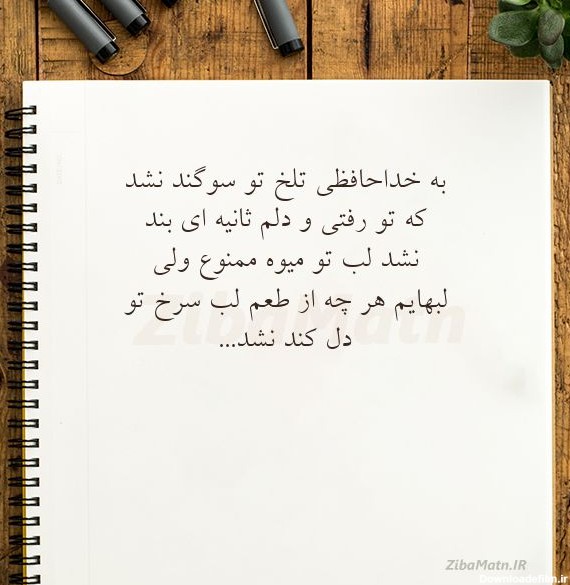 به خداحافظی تلخ تو سوگند نشد
که تو رفتی و دلم ثانیه ای بند
نشد لب تو میوه ممنوع ولی
لبهایم هر چه از طعم لب سرخ تو
دل کند نشد...
ZibaMatn
ZibaMatn.IR